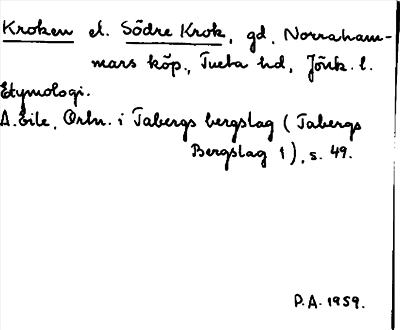 Kroken el. Södra Krok, gd, Norraham-
mars köp., Tveta hd, Jönk. l.
Etymologi.
A. Eile, Ortn. i Tabergs bergslag (Tabergs
Bergslag 1), s. 49.
P.A. 1959.